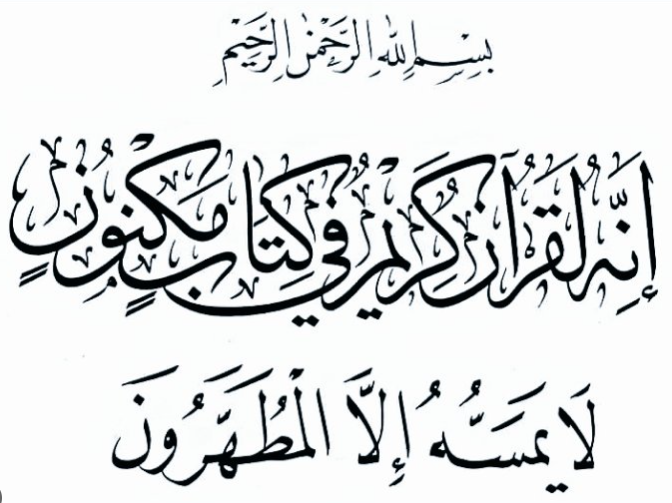 بِسْمِ اللهِ الرَّحْمٰنِ الرَّحِيْمِ
إِنَّهُ لَقُرْآنٌ كَرِيْمٌ فِي كِتَابٍ مَكْنُوْنٍ
لَا يَمَسُّهُ إِلَّا الْمُطَهَّرُونَ